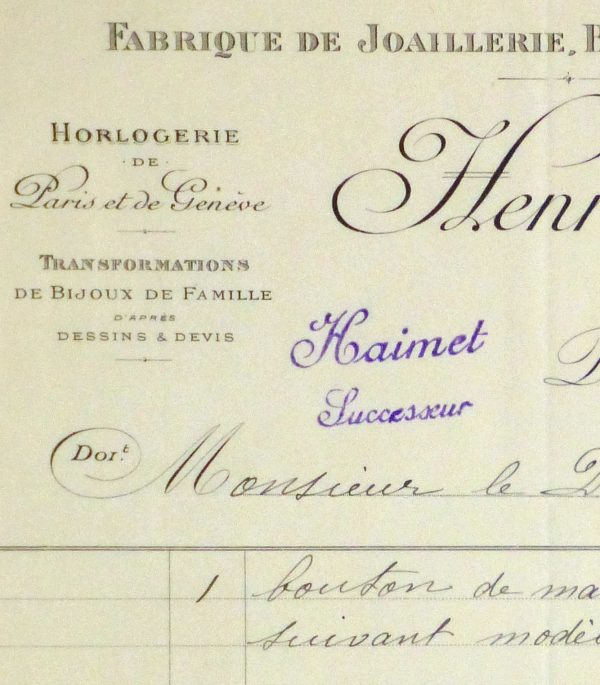 FABRIQUE DE JOAILLERIE, B
HORLOGERIE
· DE ·
Paris et de Genève
Henr
TRANSFORMATIONS
DE BIJOUX DE FAMILLE
D'APRÈS
DESSINS & DEVIS
Haimet
Successeur
Doi.t
Monsieur le D
1 bouton de ma
suivant modè